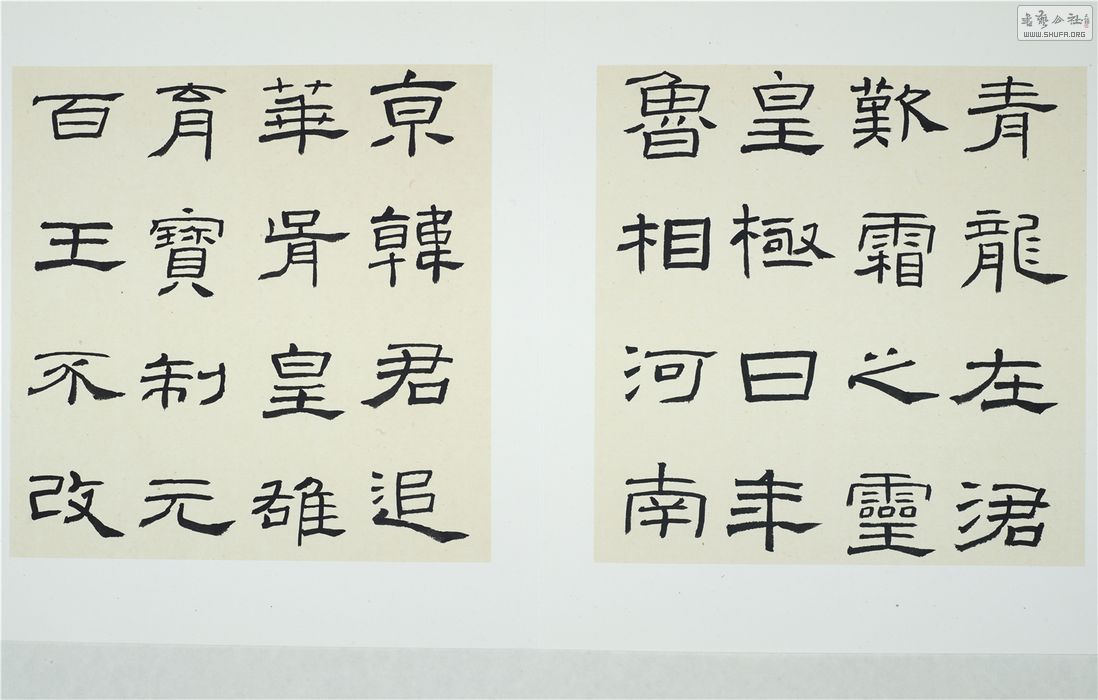 青龍在涒
歎霜之靈
皇極日年
魯相河南
亰韓君追
華胥皇雄
育寶制元
百王不改
書藝公社
WWW.SHUFA.ORG